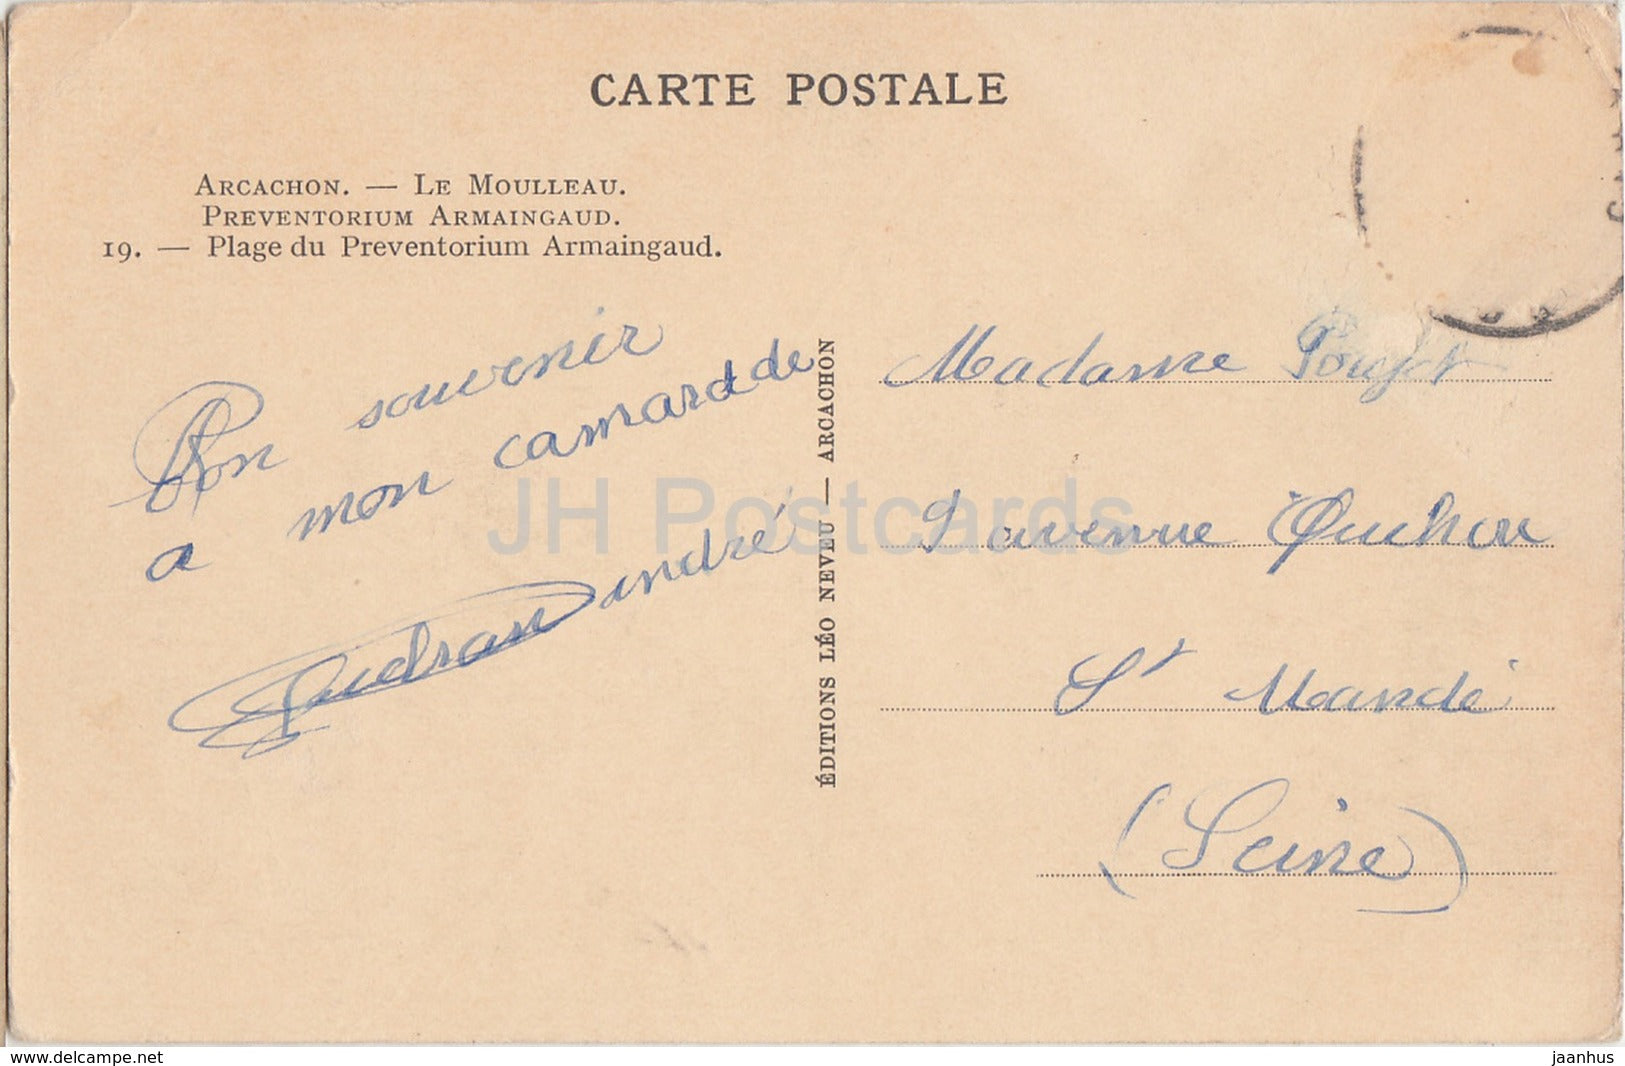 CARTE POSTALE
ARCACHON. — LE MOULLEAU.
PREVENTORIUM ARMAINGAUD.
19. — Plage du Preventorium Armaingaud.
Bon souvenir
a mon camardde
andré
ÉDITIONS LÉO NEVEU — ARCACHON
Madame
avenue Quihou
St Mandé
(Seine)
JH Postcards
www.delcampe.net
jaanhus